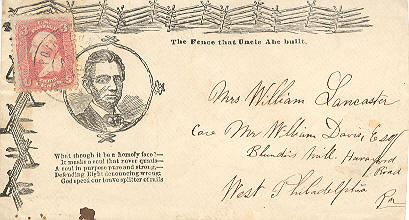 The Fence that Uncle Abe built.
What though it be a homely face?—
It masks a soul that never quails—
A soul in purpose pure and strong,—
Defending Right denouncing wrong;
God speed our brave splitter of rails
Mrs William Lancaster
Care Mr William Davis, Esqr
Blundins Mill. Haverford
Road
West Philadelphia
Pa